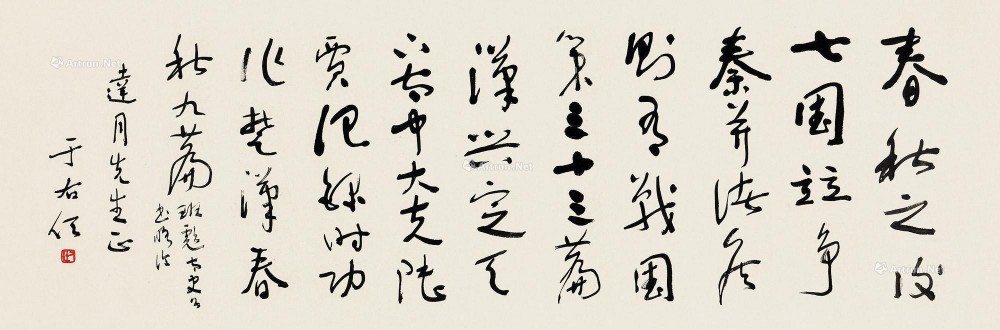 春秋之後
七國竝爭
秦并諸侯
則有戰國
策三十三篇
漢興定天
下太中大夫陸
賈記錄時功
作楚漢春
秋九篇 班彪太史公
達月先生正
于右任
Artron.Net
Artron.Net
Artron.Net